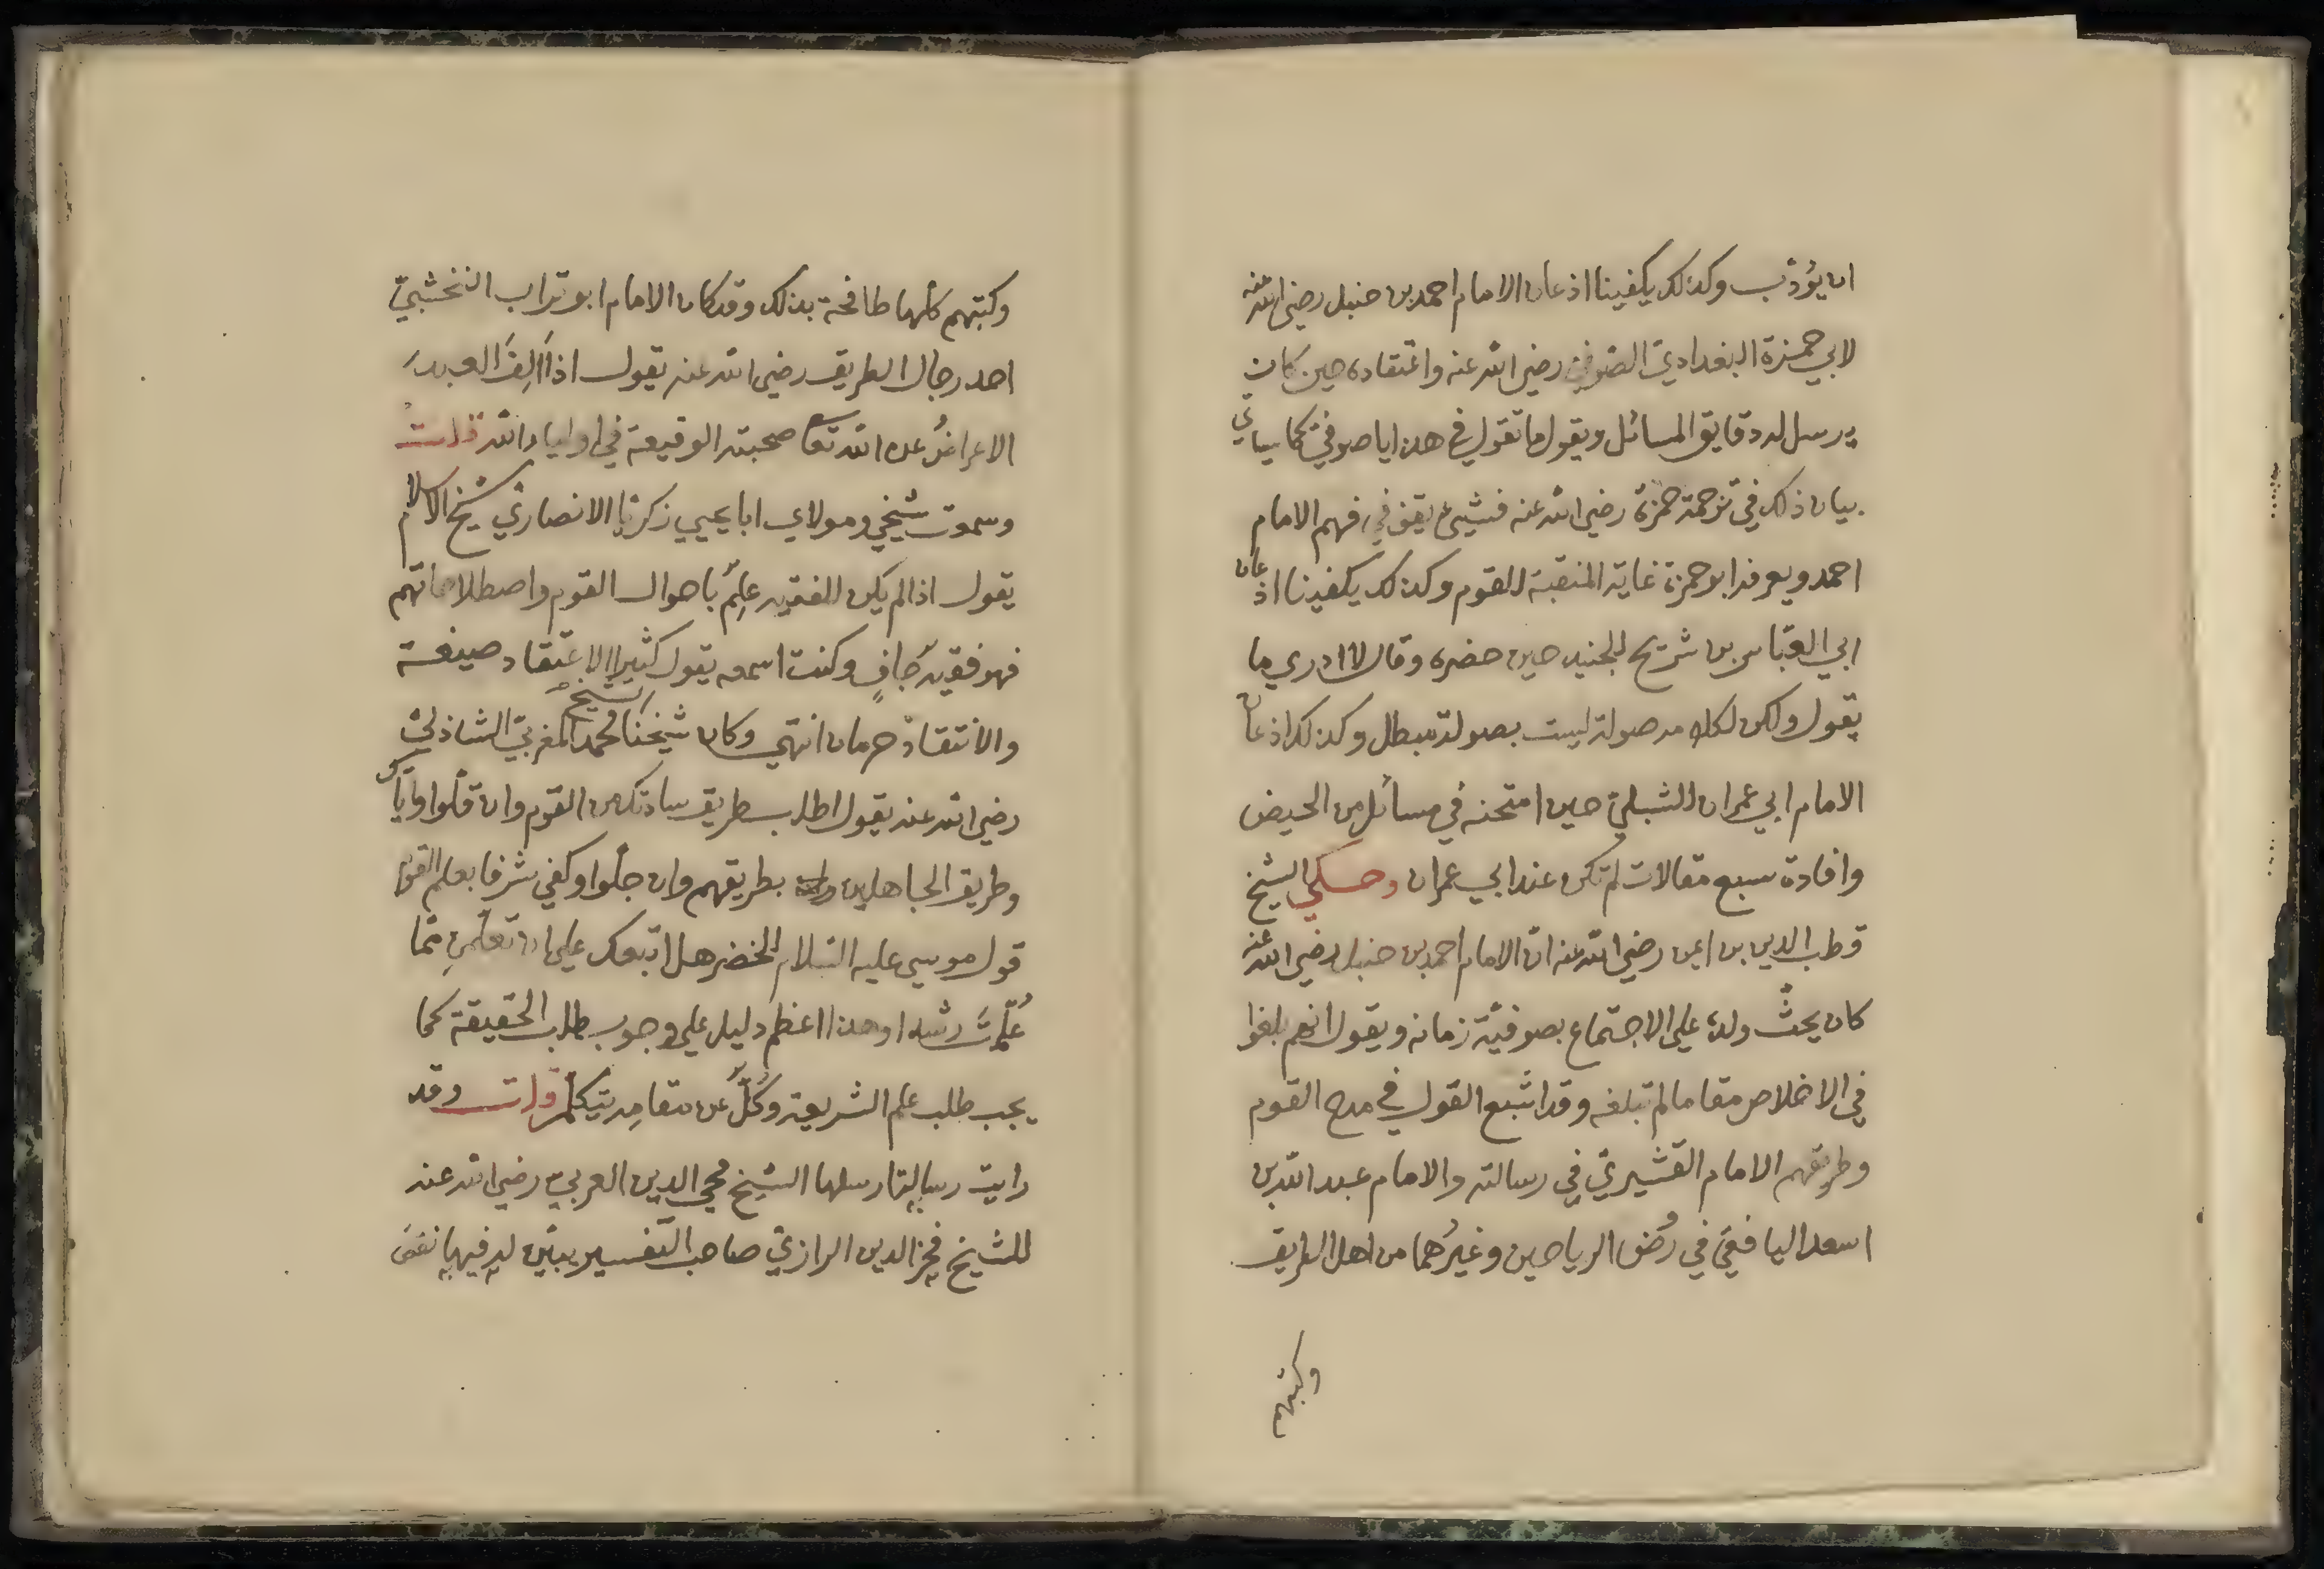 ان يؤذب وكذلك يكفينا اذعان الامام احمد بن حنبل رضي الله عنه
لابي حمزة البغدادي الصوفي رضي الله عنه واعتقاده حين كان
يرسل له دقايق المسائل ويقول ما تقول في هذا يا صوفي كما سياتي
بيان ذلك في ترجمة حمزة رضي الله عنه فشيئ يقف في فهم الامام
احمد ويعرفه ابو حمزة غاية المنقبة للقوم وكذلك يكفينا اذعان
ابي العباس بن شريح للجنيد حين حضره وقال لا ادري ما
يقول ولكن لكلامه صولة ليست بصولة مبطل وكذلك اذعان
الامام ابي عمران للشبلي حين امتحنه في مسائل من الحيض
وافاده سبع مقالات لم تكن عند ابي عمران وحكي الشيخ
قطب الدين بن ايمن رضي الله عنه ان الامام احمد بن حنبل رضي الله عنه
كان يحث ولده علي الاجتماع بصوفية زمانه ويقول انهم بلغوا
في الاخلاص مقاما لم نبلغه وقد اشبع القول في مدح القوم
وطريقهم الامام القشيري في رسالته والامام عبد الله بن
اسعد اليافعي في روض الرياحين وغيرهما من اهل الطريق
وكتبهم
وكتبهم كلها طافحة بذلك وقد كان الامام ابو تراب النخشبي
احد رجال الطريق رضي الله عنه يقول اذا الف العبد
الاعراض عن الله تعا صحبته الوقيعة في اولياء الله قلت
وسمعت شيخي ومولاي ابا يحيي زكريا الانصاري شيخ الاسلام
يقول اذا لم يكن للفقيه علم باحوال القوم واصطلاحاتهم
فهو فقيه جاف وكنت اسمعه يقول كثيرا الاعتقاد صيغة
والانتقاد حرمان انتهي وكان شيخنا الشيخ محمد المغربي الشاذلي
رضي الله عنه يقول اطلب طريق ساداتك من القوم وان قلوا واياك
وطريق الجاهلين بطريقهم وان جلوا وكفي شرفا بعلم القوم
قول موسي عليه السلام للخضر هل اتبعك علي ان تعلمن مما
علمت رشدا وهذا اعظم دليل علي وجوب طلب الحقيقة كما
يجب طلب علم الشريعة وكل عن مقامه يتكلم قلت وقد
رايت رسالة ارسلها الشيخ محي الدين العربي رضي الله عنه
للشيخ فخر الدين الرازي صاحب التفسير يبين له فيها نقص